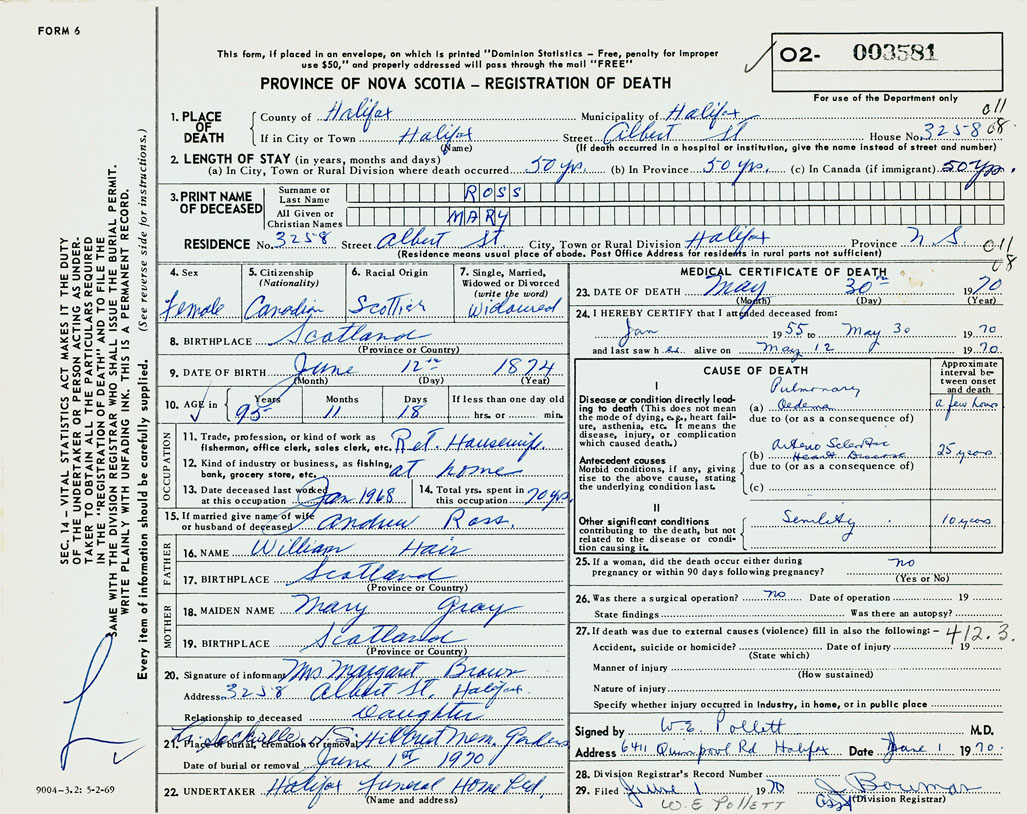 FORM 6
This form, if placed in an envelope, on which is printed "Dominion Statistics – Free, penalty for improper
use $50," and properly addressed will pass through the mail "FREE"
O2- 003581
For use of the Department only
PROVINCE OF NOVA SCOTIA – REGISTRATION OF DEATH
011
08
1. PLACE OF DEATH
County of Halifax Municipality of Halifax
If in City or Town Halifax Street Albert St House No. 3258
(Name) (If death occurred in a hospital or institution, give the name instead of street and number)
2. LENGTH OF STAY (in years, months and days)
(a) In City, Town or Rural Division where death occurred 50 yrs. (b) In Province 50 yrs. (c) In Canada (if immigrant) 50 yrs.
3. PRINT NAME OF DECEASED
Surname or Last Name ROSS
All Given or Christian Names MARY
RESIDENCE No. 3258 Street Albert St City, Town or Rural Division Halifax Province N.S. 011
(Residence means usual place of abode. Post Office Address for residents in rural parts not sufficient) 08
4. Sex
Female
5. Citizenship
(Nationality)
Canadian
6. Racial Origin
Scottish
7. Single, Married,
Widowed or Divorced
(write the word)
Widowed
8. BIRTHPLACE Scotland
(Province or Country)
9. DATE OF BIRTH June 12th 1874
(Month) (Day) (Year)
10. AGE in
Years Months Days If less than one day old
95 11 18 hrs. or min.
OCCUPATION
11. Trade, profession, or kind of work as
fisherman, office clerk, sales clerk, etc. Ret. Housewife
12. Kind of industry or business, as fishing,
bank, grocery store, etc. at home
13. Date deceased last worked
at this occupation Jan 1968
14. Total yrs. spent in
this occupation 70 yrs
15. If married give name of wife
or husband of deceased Andrew Ross.
FATHER
16. NAME William Hair
17. BIRTHPLACE Scotland
(Province or Country)
MOTHER
18. MAIDEN NAME Mary Gray
19. BIRTHPLACE Scotland
(Province or Country)
20. Signature of informant Mrs Margaret Brown
Address 3258 Albert St. Halifax.
Relationship to deceased Daughter
21. Place of burial, cremation or removal Sackville N.S. Mem. Gardens
Date of burial or removal June 1st 1970
22. UNDERTAKER Halifax Funeral Home Ltd.
(Name and address)
MEDICAL CERTIFICATE OF DEATH
23. DATE OF DEATH May 30th 1970
(Month) (Day) (Year)
24. I HEREBY CERTIFY that I attended deceased from:
Jan 1955 to May 30 1970
and last saw her alive on May 12 1970
CAUSE OF DEATH
Approximate
interval be-
tween onset
and death
I
Disease or condition directly lead-
ing to death (This does not mean
the mode of dying, e.g., heart fail-
ure, asthenia, etc. It means the
disease, injury, or complication
which caused death.)
Pulmonary
(a) Oedema
a few hours
due to (or as a consequence of)
Antecedent causes
Morbid conditions, if any, giving
rise to the above cause, stating
the underlying condition last.
Arterio Sclerotic
(b) Heart Disease
25 years
due to (or as a consequence of)
(c)
II
Other significant conditions
contributing to the death, but not
related to the disease or condi-
tion causing it.
Senility
10 years
25. If a woman, did the death occur either during
pregnancy or within 90 days following pregnancy? no
(Yes or No)
26. Was there a surgical operation? no Date of operation 19
State findings Was there an autopsy?
27. If death was due to external causes (violence) fill in also the following:– 412.3.
Accident, suicide or homicide? Date of injury 19
(State which)
Manner of injury
(How sustained)
Nature of injury
Specify whether injury occurred in Industry, in home, or in public place
Signed by W.E. Pollett M.D.
Address 6411 Quinpool Rd Halifax Date June 1 1970
28. Division Registrar's Record Number
29. Filed June 1 1970
(Division Registrar)
W. E. POLLETT
SEC. 14 – VITAL STATISTICS ACT MAKES IT THE DUTY
OF THE UNDERTAKER OR PERSON ACTING AS UNDER-
TAKER TO OBTAIN ALL THE PARTICULARS REQUIRED
IN THE "REGISTRATION OF DEATH" AND TO FILE THE
SAME WITH THE DIVISION REGISTRAR WHO SHALL ISSUE THE BURIAL PERMIT.
WRITE PLAINLY WITH UNFADING INK. THIS IS A PERMANENT RECORD.
Every item of information should be carefully supplied. (See reverse side for instructions.)
9004–3.2: 5-2-69